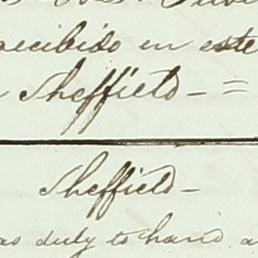 recibido en este
Sheffield - =
Sheffield -
as duly to hand a